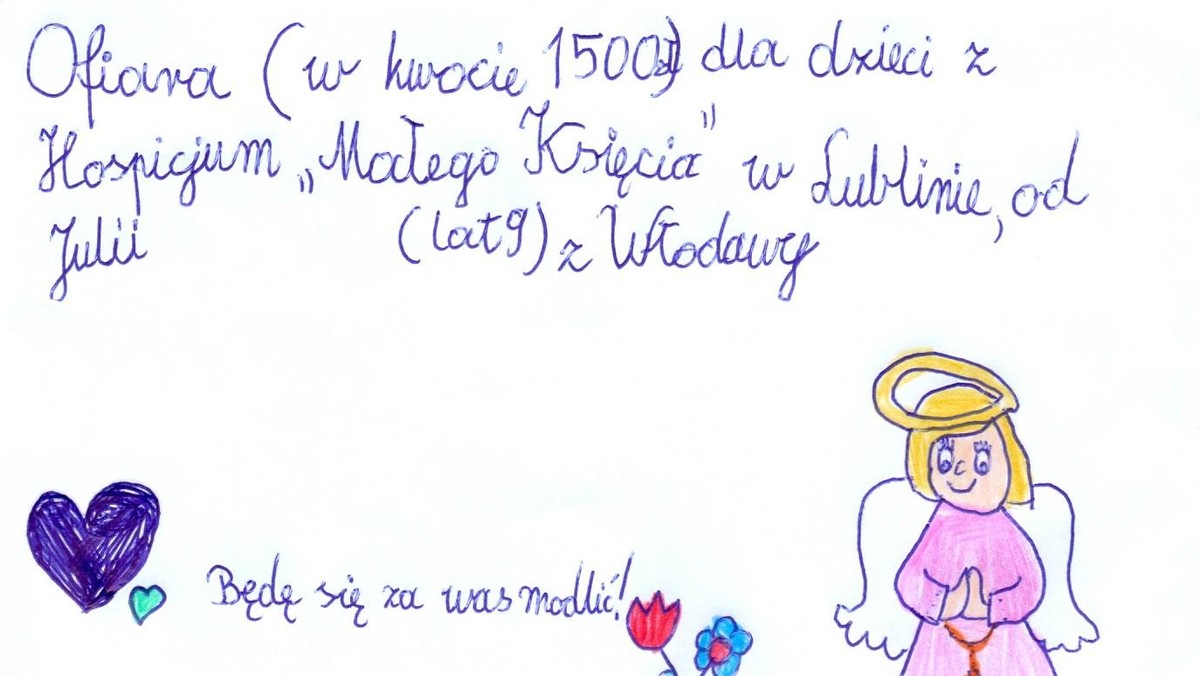 Ofiara (w kwocie 1500zł) dla dzieci z
Hospicjum „Małego Księcia” w Lublinie, od
Julii (lat 9) z Włodawy
Będę się za was modlić!